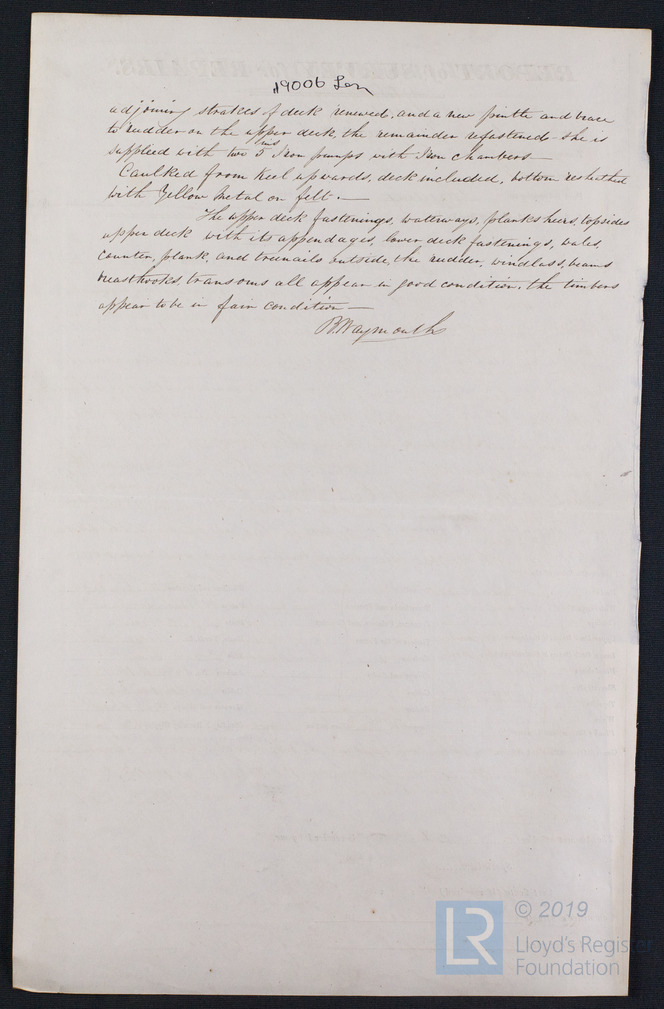 19006 Lon
adjoining strakes of deck renewed, and a new pintle and brace
to rudder on the upper deck, the remainder refastened - she is
supplied with two 5 ins Iron pumps with Iron chambers —
Caulked from keel upwards, deck included, bottom resheathed
with Yellow Metal on felt. —
The upper deck fastenings, waterways, planksheers, topsides
upper deck with its appendages, lower deck fastenings, wales,
counter, plank, and treenails outside, the rudder, windlass, beams
breasthooks, transoms all appear in good condition. the timbers
appear to be in fair condition —
B Waymouth
© 2019
LR
Lloyd's Register
Foundation